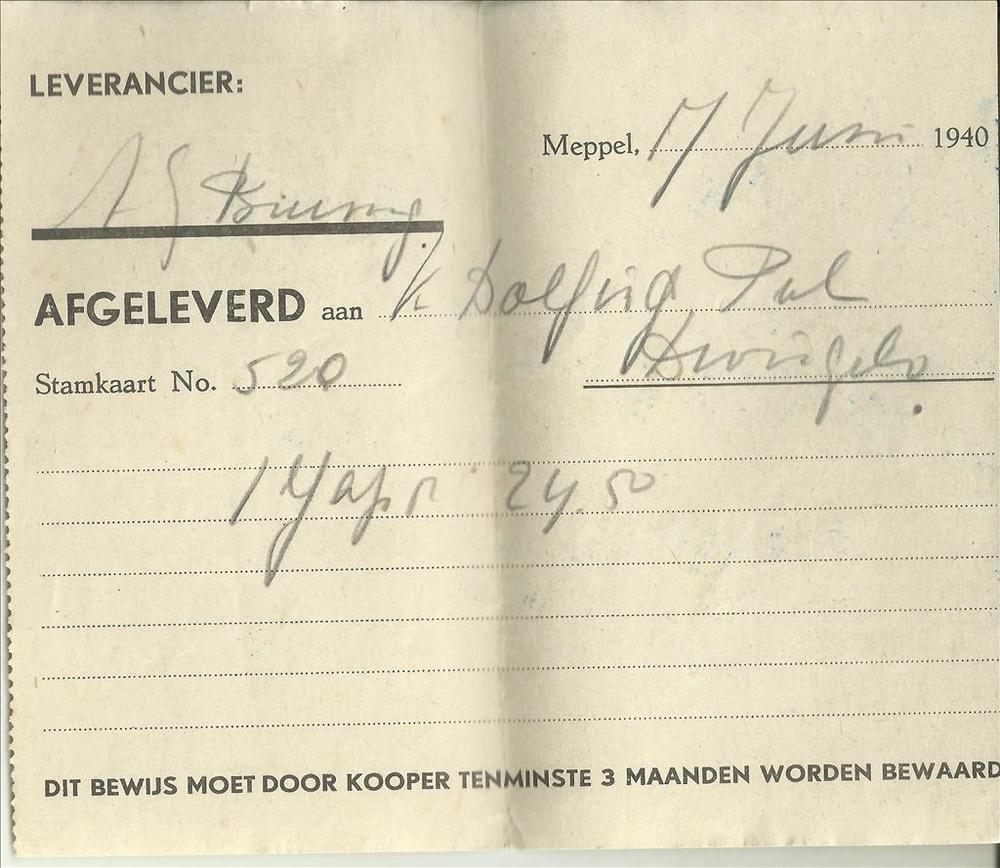 LEVERANCIER:
Meppel, 17 Juni 1940
AFGELEVERD aan
Stamkaart No. 520
Dwingelo.
1 Japr 24.50
DIT BEWIJS MOET DOOR KOOPER TENMINSTE 3 MAANDEN WORDEN BEWAARD